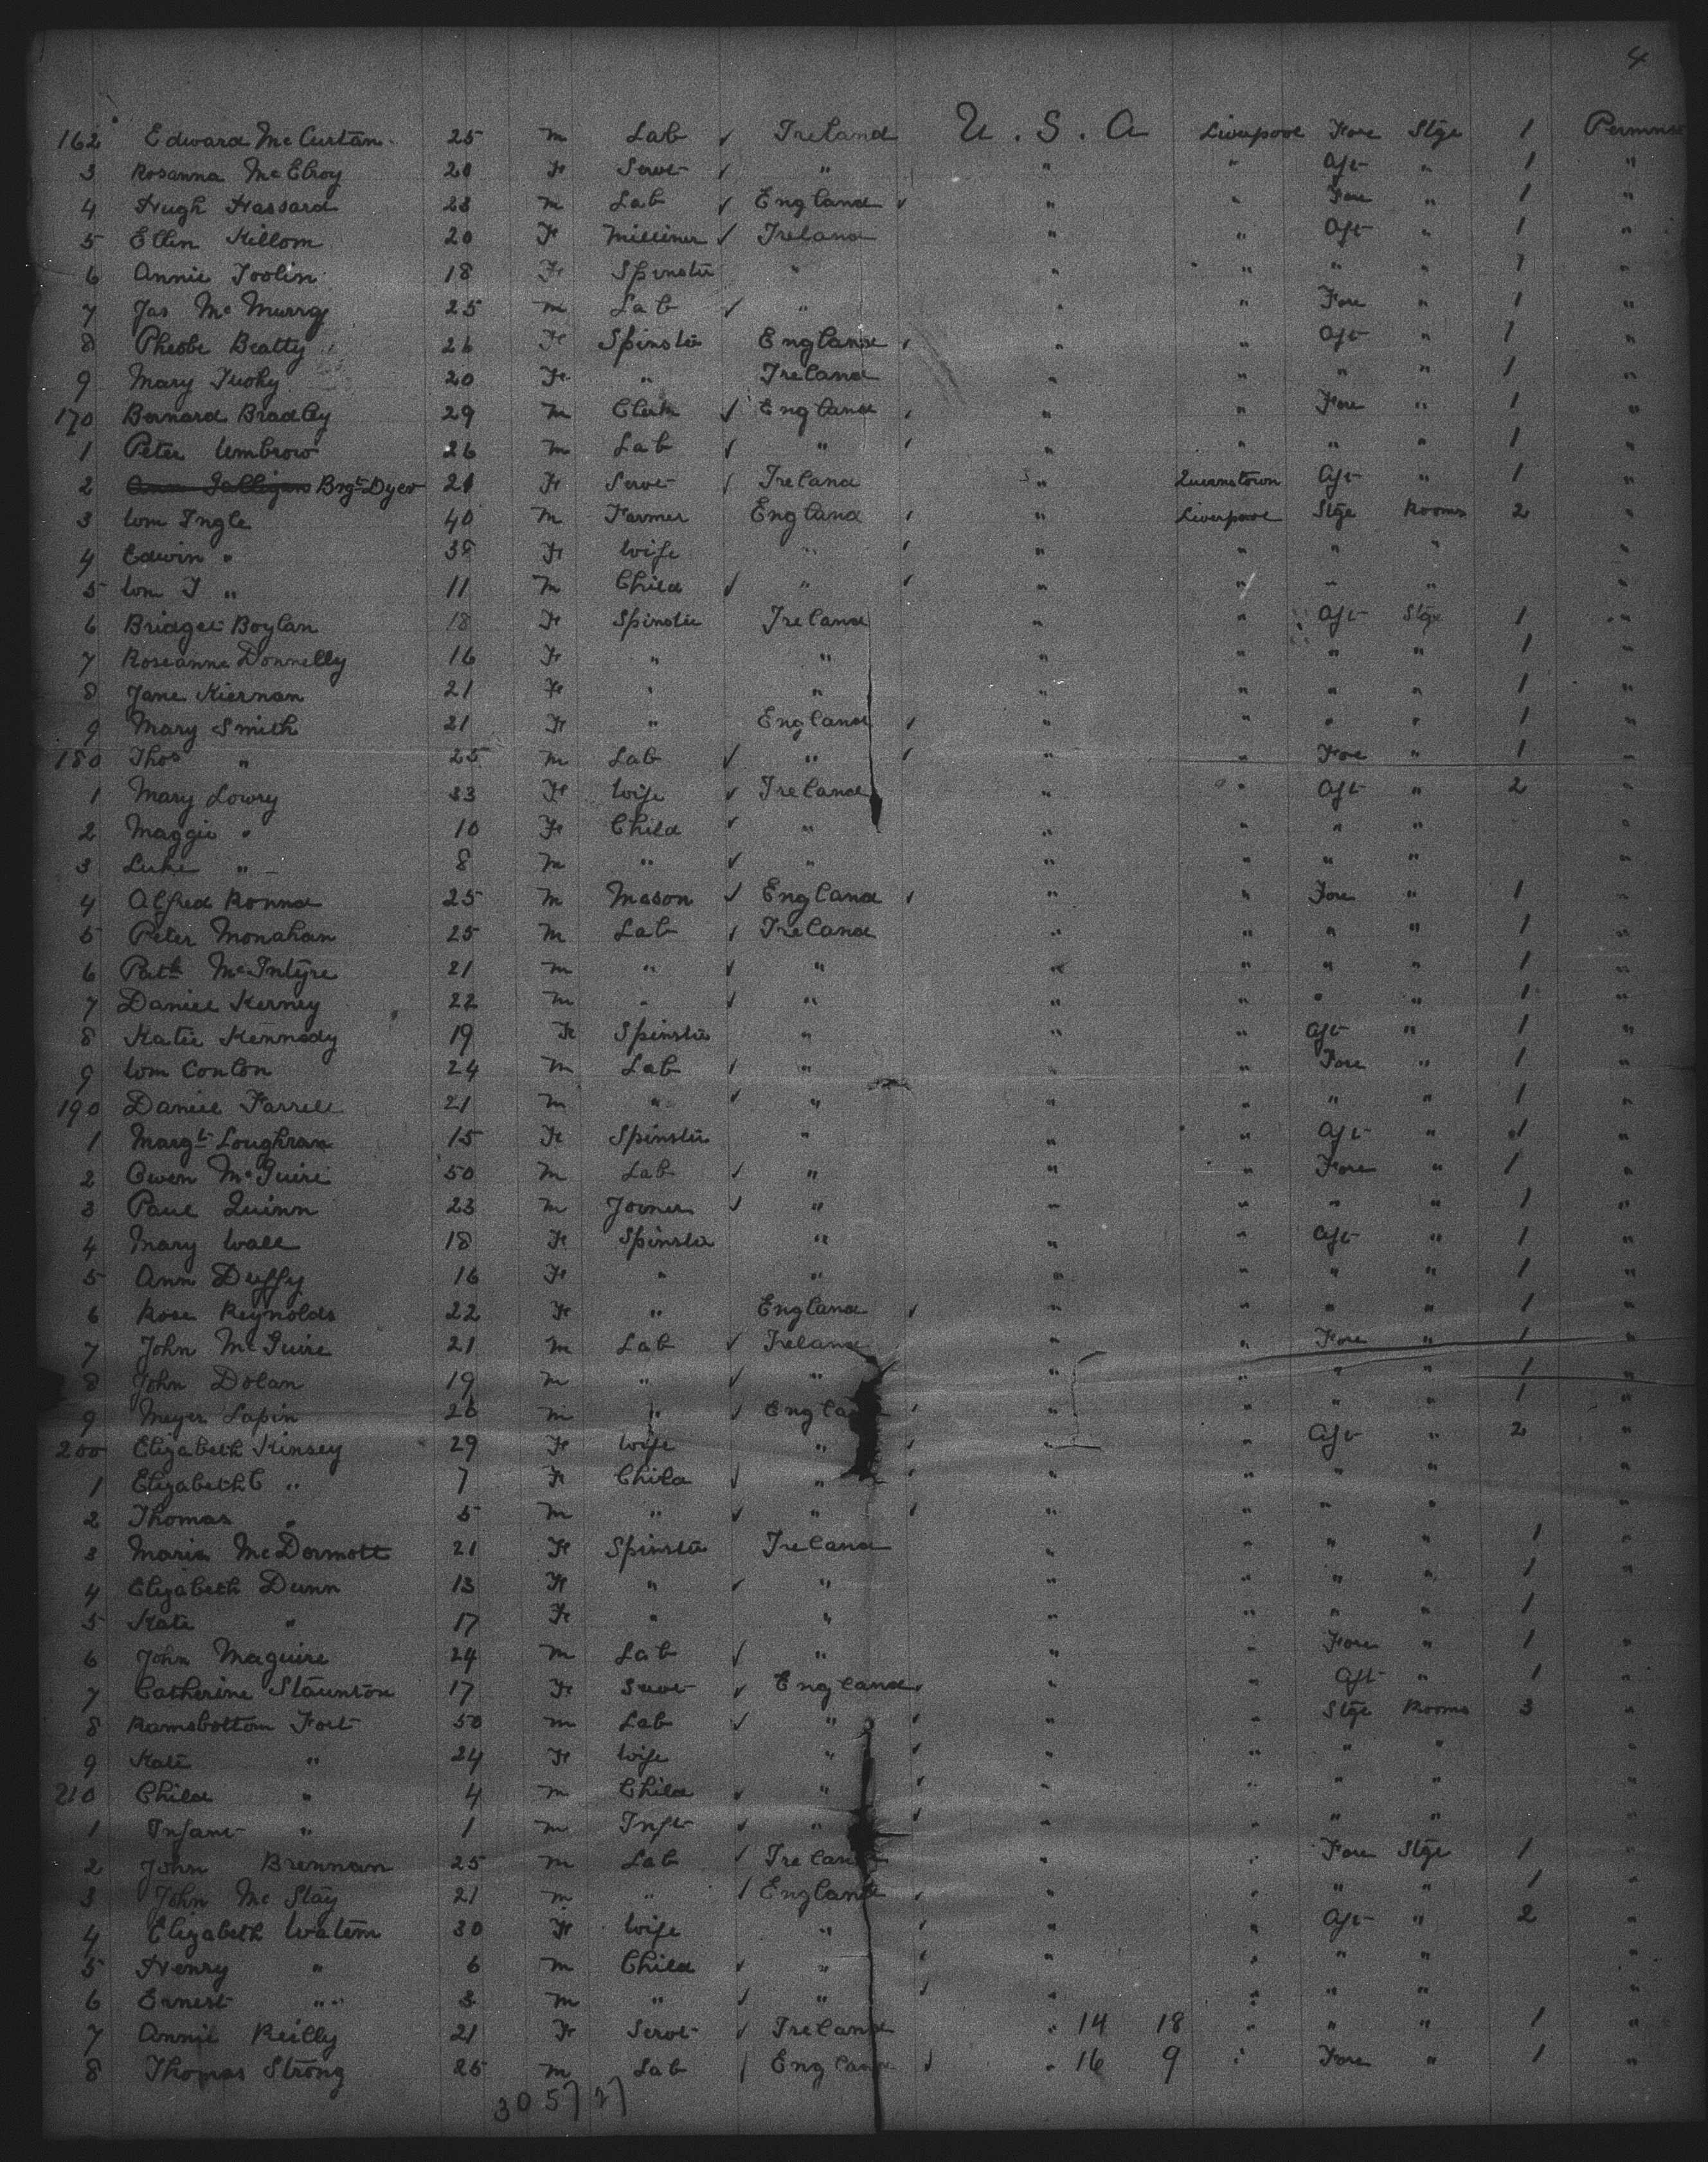 4
162 Edward McCurtan 25 m Lab ✓ Ireland U.S.A Liverpool Fore Stge 1
3 Rosanna McElroy 20 Fe Servt ✓ " " " Aft " 1 "
4 Hugh Hassard 23 m Lab ✓ England ✓ " " Fore " 1 "
5 Ellen Killom 20 Fe Milliner ✓ Ireland " " Aft " 1 "
6 Annie Toolin 18 Fe Spinster " " " " " 1 "
7 Jas McMurry 25 m Lab ✓ " " " Fore " 1 "
8 Pheobe Beatty 26 Fe Spinster England ✓ " " Aft " 1 "
9 Mary Tuohy 20 Fe " Ireland " " " " 1 "
170 Bernard Bradley 29 m Clerk ✓ England ✓ " " Fore " 1 "
1 Peter Umbrow 26 m Lab ✓ " ✓ " " " " 1 "
2 Brgt Dyer 21 Fe Servt ✓ Ireland " Queenstown Aft " 1 "
3 Wm Ingle 40 m Farmer England ✓ " Liverpool Stge Rooms 2 "
4 Edwin " 38 Fe Wife " ✓ " " " " "
5 Wm J " 11 m Child ✓ " ✓ " " " " "
6 Bridget Boylan 18 Fe Spinster Ireland " " Aft Stge 1 "
7 Roseanna Donnelly 16 Fe " " " " " " 1 "
8 Jane Kiernan 21 Fe " " " " " " 1 "
9 Mary Smith 21 Fe " England ✓ " " " " 1 "
180 Thos " 25 m Lab ✓ " ✓ " " Fore " 1 "
1 Mary Lowry 33 Fe Wife ✓ Ireland " " Aft " 2 "
2 Maggie " 10 Fe Child ✓ " " " " " "
3 Luke " 8 m " ✓ " " " " " "
4 Alfred 25 m Mason ✓ England ✓ " " Fore " 1 "
5 Peter Monahan 25 m Lab ✓ Ireland " " " " 1 "
6 Patk McIntyre 21 m " ✓ " " " " " 1 "
7 Daniel Kerney 22 m " ✓ " " " " " 1 "
8 Katie Kennedy 19 Fe Spinster " " " Aft " 1 "
9 Wm Conlon 24 m Lab ✓ " " " Fore " 1 "
190 Daniel Farrell 21 m " ✓ " " " " " 1 "
1 Margt Loughran 15 Fe Spinster " " " Aft " 1 "
2 Owen McGuire 50 m Lab ✓ " " " Fore " 1 "
3 Paul Quinn 23 m Joiner ✓ " " " " " 1 "
4 Mary Wall 18 Fe Spinster " " " Aft " 1 "
5 Ann Duffy 16 Fe " " " " " " 1 "
6 Rose Reynolds 22 Fe " England ✓ " " " " 1 "
7 John McGuire 21 m Lab ✓ Ireland " " Fore " 1 "
8 John Dolan 19 m " ✓ " " " " " 1 "
9 Meyer Lapin 26 m " ✓ England ✓ " " " " 1 "
200 Elizabeth Kinsey 29 Fe Wife " ✓ " " Aft " 2 "
1 Elizabeth C " 7 Fe Child ✓ " ✓ " " " " "
2 Thomas " 5 m " ✓ " ✓ " " " " "
3 Maria McDermott 21 Fe Spinster Ireland " " " " 1 "
4 Elizabeth Dunn 13 Fe " ✓ " " " " " 1 "
5 Kate " 17 Fe " " " " " " 1 "
6 John Maguire 24 m Lab ✓ " " " Fore " 1 "
7 Catherine Staunton 17 Fe Servt ✓ England ✓ " " Aft " 1 "
8 Ramsbottom Fort 50 m Lab ✓ " ✓ " " Stge Rooms 3 "
9 Kate " 24 Fe Wife " ✓ " " " " "
210 Child " 4 m Child ✓ " ✓ " " " " "
1 Infant " 1 m Inft ✓ " ✓ " " " " "
2 John Brennan 25 m Lab ✓ Ireland " " Fore Stge 1 "
3 John McStay 21 m " ✓ England ✓ " " " " 1 "
4 Elizabeth 30 Fe Wife " ✓ " " Aft " 2 "
5 Henry " 6 m Child ✓ " ✓ " " " " "
6 Ernest " 3 m " ✓ " ✓ " " " " "
7 Annie Reilly 21 Fe Servt ✓ Ireland " 14 18 " " " 1 "
8 Thomas Strong 25 m Lab ✓ England ✓ " 16 9 " Fore " 1 "